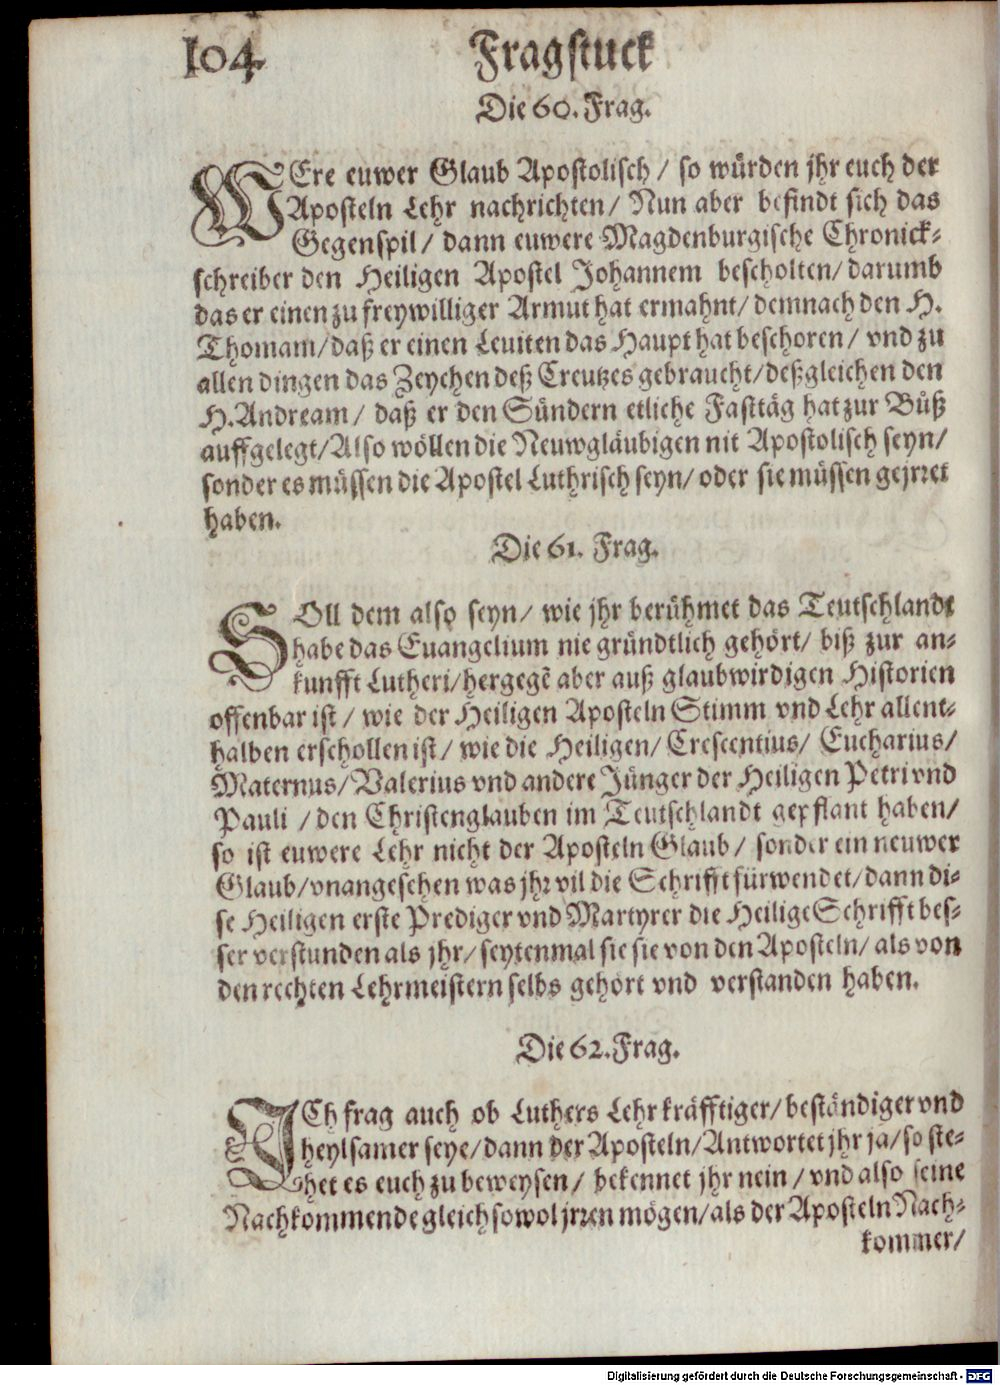 104 Fragstuck
Die 60. Frag.
WEre euwer Glaub Apostolisch / so würden jhr euch der
Aposteln Lehr nachrichten / Nun aber befindt sich das
Gegenspil / dann euwere Magdenburgische Chronick-
schreiber den Heiligen Apostel Johannem bescholten / darumb
das er einen zu freywilliger Armut hat ermahnt / demnach den H.
Thomam / daß er einen Leuiten das Haupt hat beschoren / vnd zu
allen dingen das Zeychen deß Creutzes gebraucht / deßgleichen den
H. Andream / daß er den Sündern etliche Fasttäg hat zur Büß
auffgelegt / Also wöllen die Neuwgläubigen nit Apostolisch seyn /
sonder es müssen die Apostel Luthrisch seyn / oder sie müssen gejrret
haben.
Die 61. Frag.
SOll dem also seyn / wie jhr berühmet das Teutschlandt
habe das Euangelium nie gründtlich gehört / biß zur an-
kunfft Lutheri / hergegẽ aber auß glaubwirdigen Historien
offenbar ist / wie der Heiligen Aposteln Stimm vnd Lehr allent-
halben erschollen ist / wie die Heiligen / Crescentius / Eucharius /
Maternus / Valerius vnd andere Jünger der Heiligen Petri vnd
Pauli / den Christenglauben im Teutschlandt gepflant haben /
so ist euwere Lehr nicht der Aposteln Glaub / sonder ein neuwer
Glaub / vnangesehen was jhr vil die Schrifft fürwendet / dann di-
se Heiligen erste Prediger vnd Martyrer die Heilige Schrifft bes-
ser verstunden als jhr / seytenmal sie sie von den Aposteln / als von
den rechten Lehrmeistern selbs gehört vnd verstanden haben.
Die 62. Frag.
ICh frag auch ob Luthers Lehr kräfftiger / beständiger vnd
heylsamer seye / dann der Aposteln / Antwortet jhr ja / so ste-
het es euch zu beweysen / bekennet jhr nein / vnd also seine
Nachkommende gleich so wol jrren mögen / als der Aposteln Nach-
kommer /
Digitalisierung gefördert durch die Deutsche Forschungsgemeinschaft - DFG